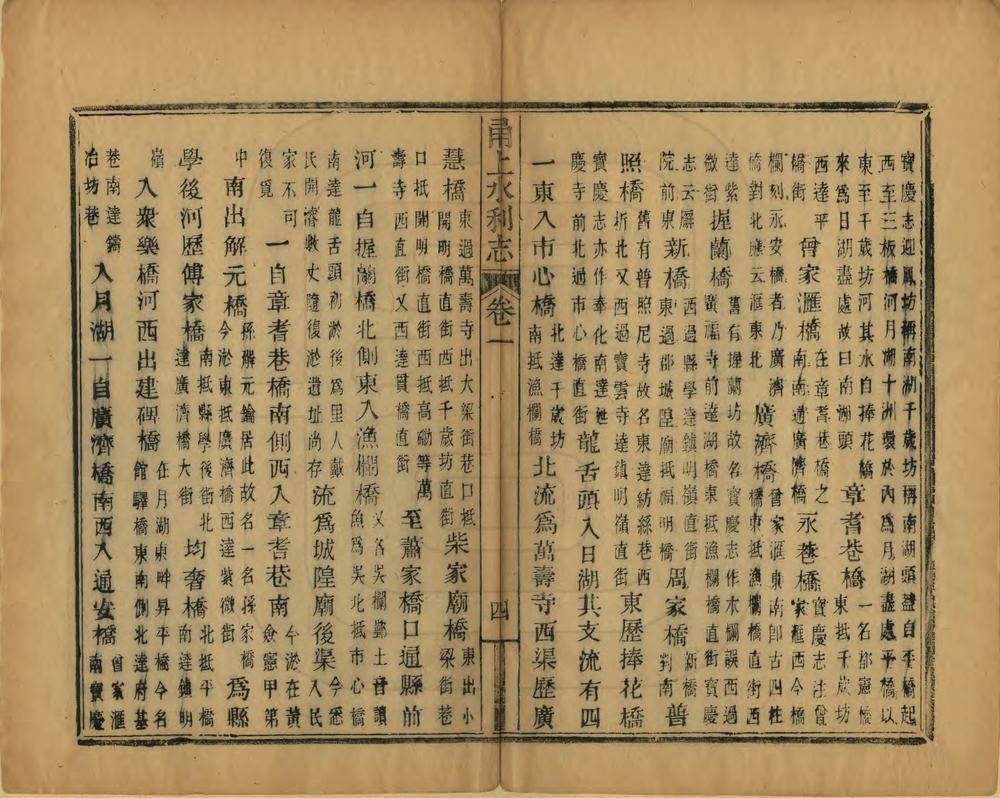 寶慶志迎鳳坊稱南湖千歲坊稱南湖頭蓋自平橋起西至三板橋河月湖十洲環於內爲月湖盡處平橋以
東至千歲坊河其水自捧花橋來爲日湖盡處故曰南湖頭章耆巷橋一名都憲橋東抵千歲坊
西達平橋街曾家滙橋在章耆巷橋之南南通廣濟橋永巷橋寶慶志注曾家滙西今橋
欄刻永安橋者乃廣濟橋對北應云滙東北廣濟橋曾家滙東南卽古四柱橋東抵漁欄橋直街西
達紫微街握蘭橋舊有握蘭坊故名寶慶志作木欄誤西過廣福寺前達湖橋東抵漁欄橋直街寶慶
志云屏院前東新橋西過縣學達鎮明嶺直街東過郡城隍廟抵福明橋周家橋新橋對南普
照橋舊有普照尼寺故名東達紡絲巷西折北又西過寶雲寺達鎮明嶺直街東歷捧花橋
寶慶志亦作奉化南達慶寺前北過市心橋直街龍舌頭入日湖其支流有四
一東入市心橋北達千歲坊南抵漁欄橋北流爲萬壽寺西渠歷廣
甬上水利志 卷一 四
慧橋東過萬壽寺出大梁街巷口抵開明橋直街西抵千歲坊直街柴家廟橋東出小梁街巷
口抵開明橋直街西抵高等萬壽寺西直街又西達貫橋直街至蕭家橋口通縣前
河一自握蘭橋北側東入漁欄橋又名吳欄鄞土音讀魚爲吳北抵市心橋
南達龍舌頭初淤後爲里人戴氏開濬數丈隨復淤遺址尚存流爲城隍廟後渠今悉入民
家不可復覓一自章耆巷橋南側西入章耆巷南今淤在黃僉憲甲第
中南出解元橋孫解元鑰居此故名一名孫家橋今淤東抵廣濟橋西達紫微街爲縣
學後河歷傅家橋南抵縣學後街北達廣濟橋大街均奢橋北抵平橋南達鎮明
嶺入衆樂橋河西出建碑橋在月湖東畔昇平橋今名館驛橋東南側北達府基
巷南達鑄冶坊巷入月湖一自廣濟橋南西入通安橋曾家滙南寶慶